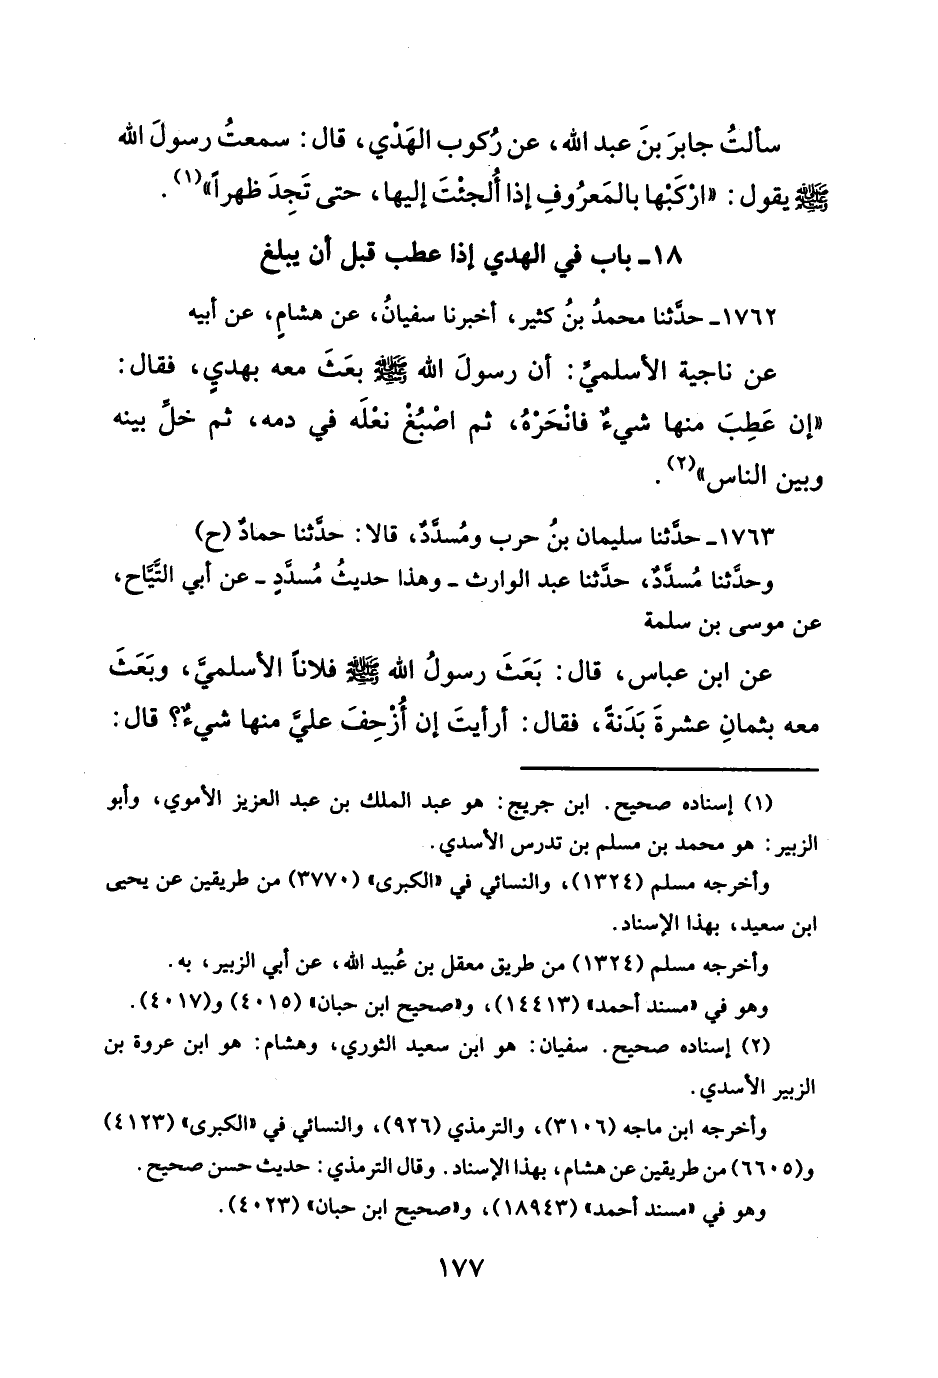 سألتُ جابرَ بنَ عبد الله، عن رُكوب الهَدْي، قال: سمعتُ رسولَ الله
ﷺ يقول: «ارْكَبْها بالمَعرُوفِ إذا أُلجئْتَ إليها، حتى تَجِدَ ظهراً»(١).
١٨ـ باب في الهدي إذا عطب قبل أن يبلغ
١٧٦٢ـ حدَّثنا محمدُ بنُ كثير، أخبرنا سفيانُ، عن هشامٍ، عن أبيه
عن ناجية الأسلميِّ: أن رسولَ الله ﷺ بعَثَ معه بهديٍ، فقال:
«إن عَطِبَ منها شيءٌ فانْحَرْهُ، ثم اصْبُغْ نعْلَه في دمه، ثم خلِّ بينه
وبين الناس»(٢).
١٧٦٣ـ حدَّثنا سليمان بنُ حرب ومُسدَّدٌ، قالا: حدَّثنا حمادٌ (ح)
وحدَّثنا مُسدَّدٌ، حدَّثنا عبد الوارث ـ وهذا حديثُ مُسدَّدٍ ـ عن أبي التَّيَّاح،
عن موسى بن سلمة
عن ابن عباس، قال: بَعَثَ رسولُ الله ﷺ فلاناً الأسلميَّ، وبَعَثَ
معه بثمانِ عشرةَ بَدَنةً، فقال: أرأيتَ إن أُزْحِفَ عليَّ منها شيءٌ؟ قال:
(١) إسناده صحيح. ابن جريج: هو عبد الملك بن عبد العزيز الأموي، وأبو
الزبير: هو محمد بن مسلم بن تدرس الأسدي.
وأخرجه مسلم (١٣٢٤)، والنسائي في «الكبرى» (٣٧٧٠) من طريقين عن يحيى
ابن سعيد، بهذا الإسناد.
وأخرجه مسلم (١٣٢٤) من طريق معقل بن عُبيد الله، عن أبي الزبير، به.
وهو في «مسند أحمد» (١٤٤١٣)، و«صحيح ابن حبان» (٤٠١٥) و(٤٠١٧).
(٢) إسناده صحيح. سفيان: هو ابن سعيد الثوري، وهشام: هو ابن عروة بن
الزبير الأسدي.
وأخرجه ابن ماجه (٣١٠٦)، والترمذي (٩٢٦)، والنسائي في «الكبرى» (٤١٢٣)
و(٦٦٠٥) من طريقين عن هشام، بهذا الإسناد. وقال الترمذي: حديث حسن صحيح.
وهو في «مسند أحمد» (١٨٩٤٣)، و«صحيح ابن حبان» (٤٠٢٣).
١٧٧